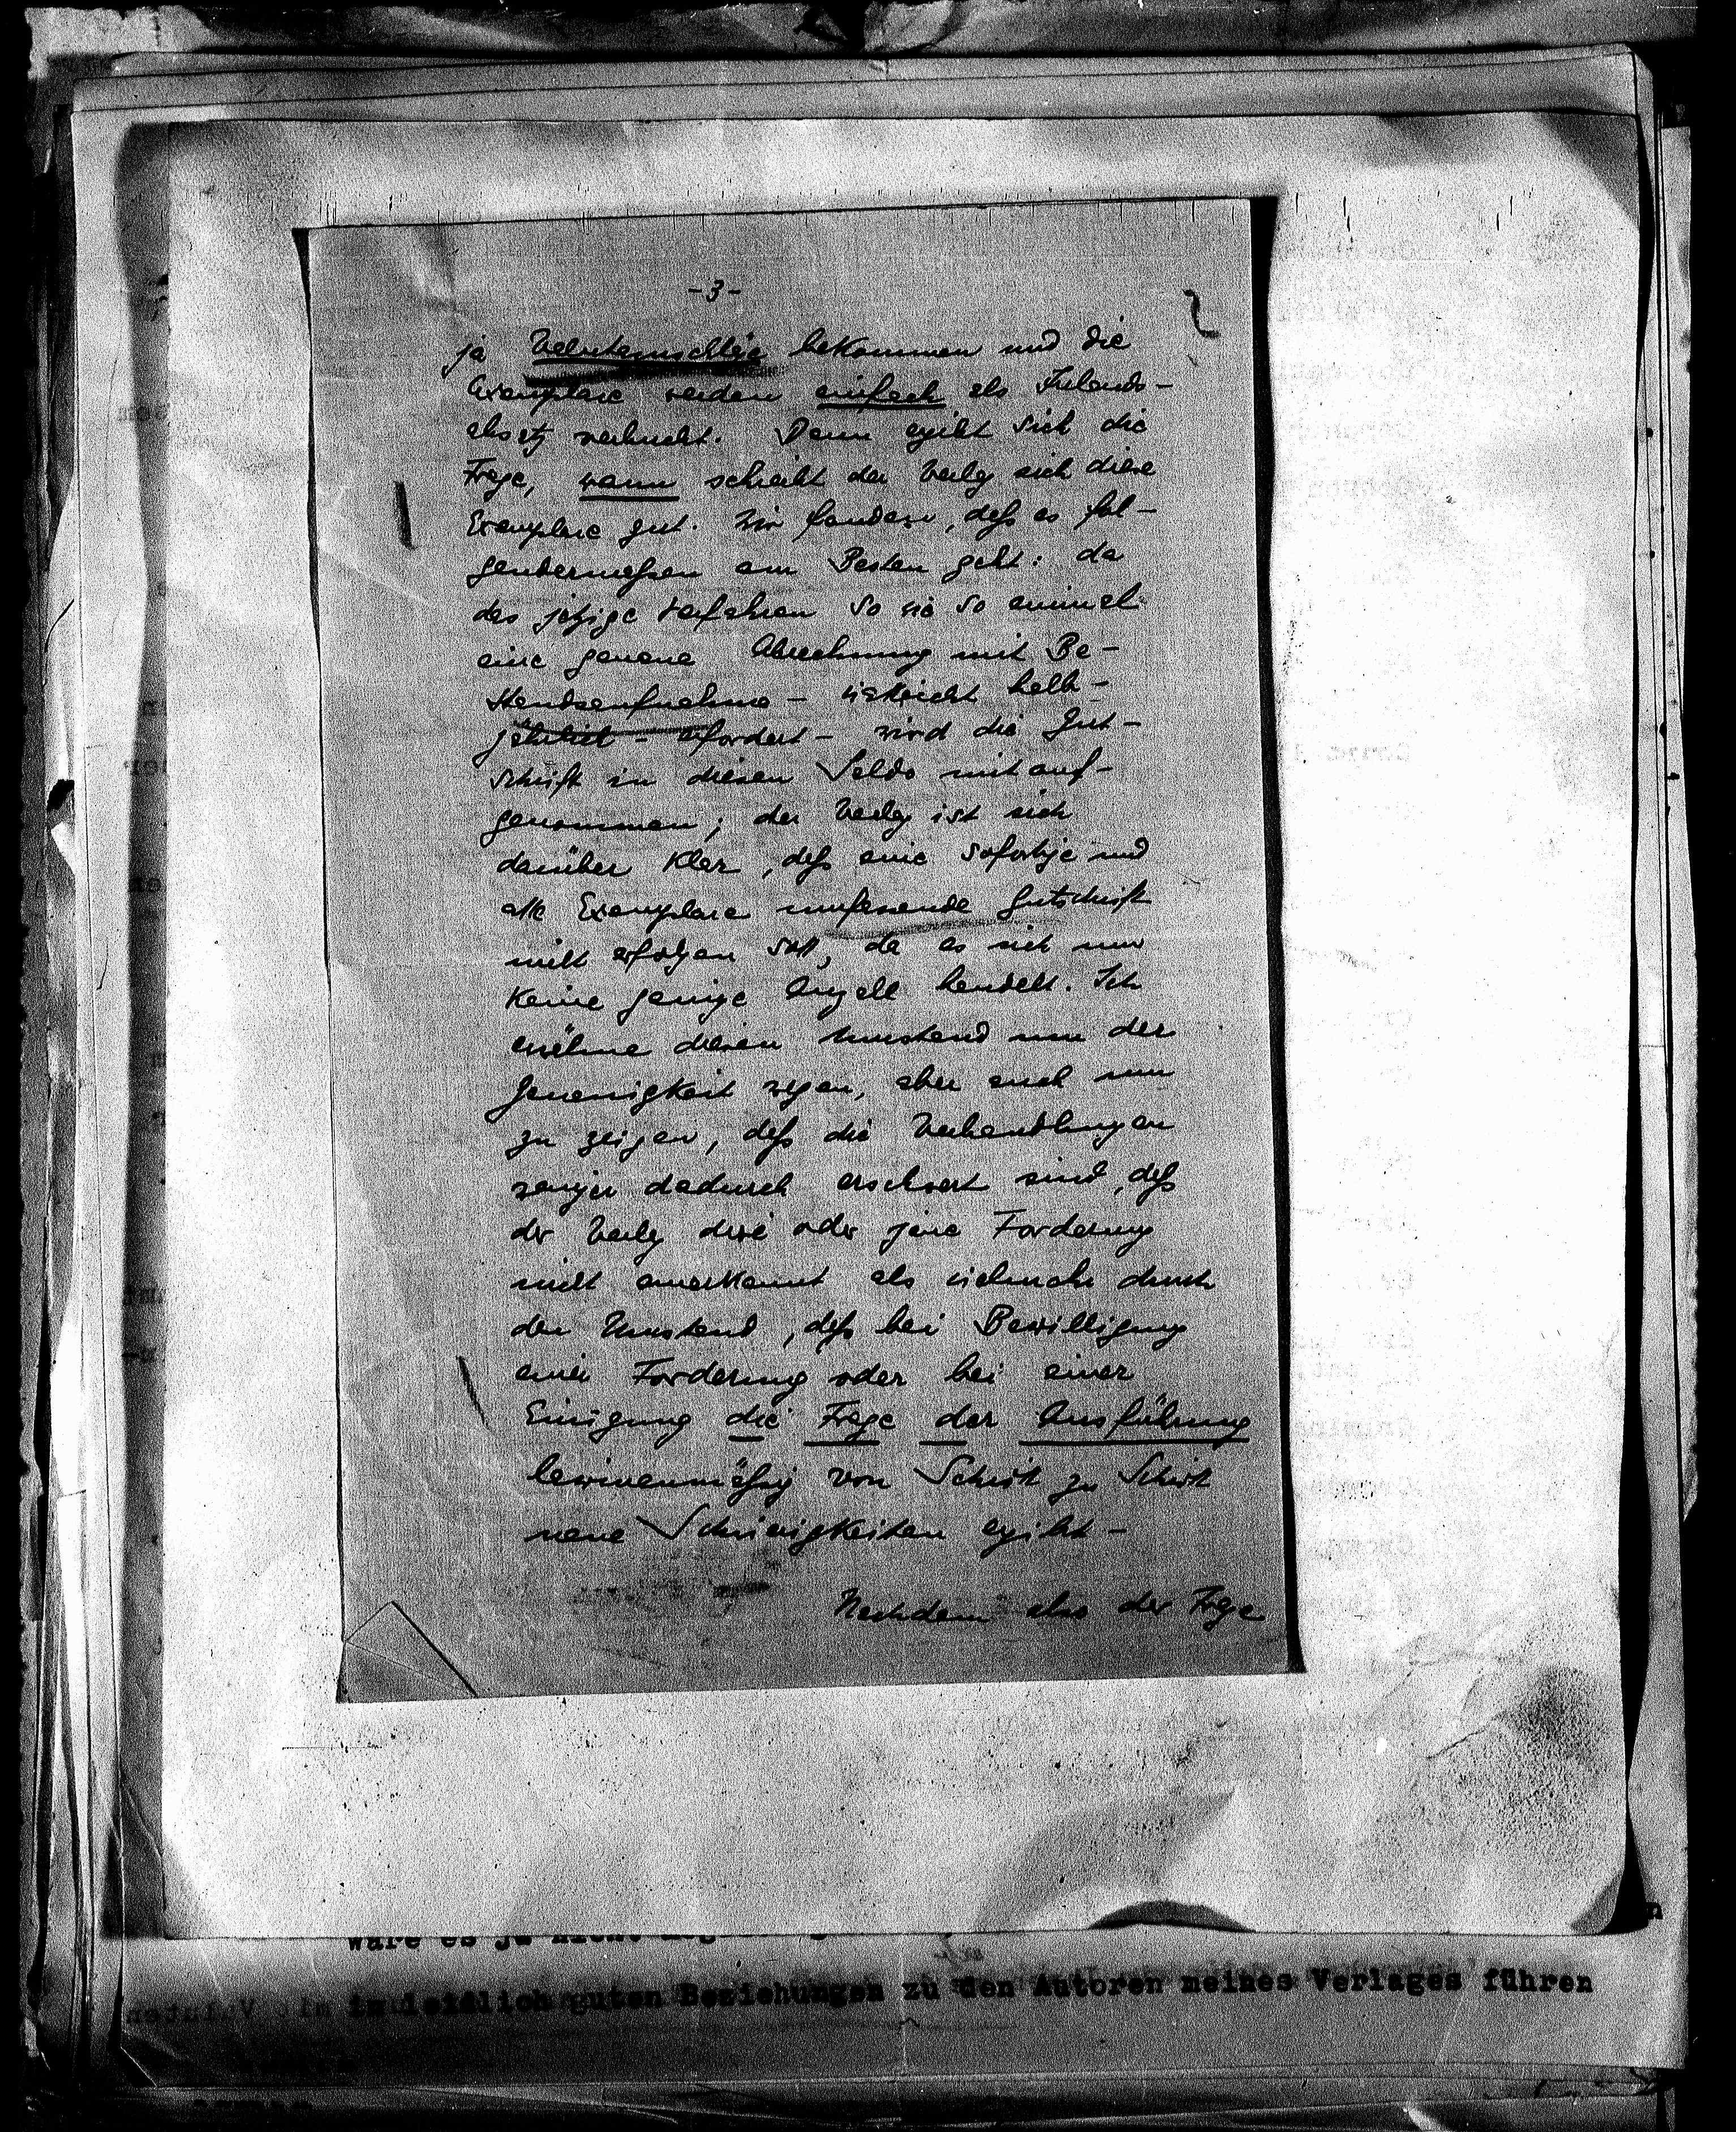 -3-
ja Valutazuschläge bekommen und die
Exemplare werden einfach als Inlands-
absatz verbucht. Dann ergibt sich die
Frage, wann schreibt der Verlag sich diese
Exemplare gut. Wir fanden, daß es fol-
gendermaßen am Besten geht: da
das jetzige Verfahren so wie so einmal
eine genaue Abrechnung mit Be-
standsaufnahme – vielleicht halb-
jährlich – erfordert – wird die Gut-
schrift in diesen Saldo mit auf-
genommen; der Verlag ist sich
darüber klar, daß eine sofortige und
alle Exemplare umfassende Gutschrift
nicht erfolgen soll, da es sich um
keine geringe Anzahl handelt. Ich
erwähne diesen Umstand um der
Genauigkeit wegen, aber auch um
zu zeigen, daß die Verhandlungen
weniger dadurch erschwert sind, daß
der Verlag diese oder jene Forderung
nicht anerkannt als vielmehr durch
den Umstand, daß bei Bewilligung
einer Forderung oder bei einer
Einigung die Frage der Ausführung
lawinenmäßig von Schritt zu Schritt
neue Schwierigkeiten ergibt –
Nachdem also der Frage
wäre es ja nicht
guten Beziehungen zu den Autoren meines Verlages führen